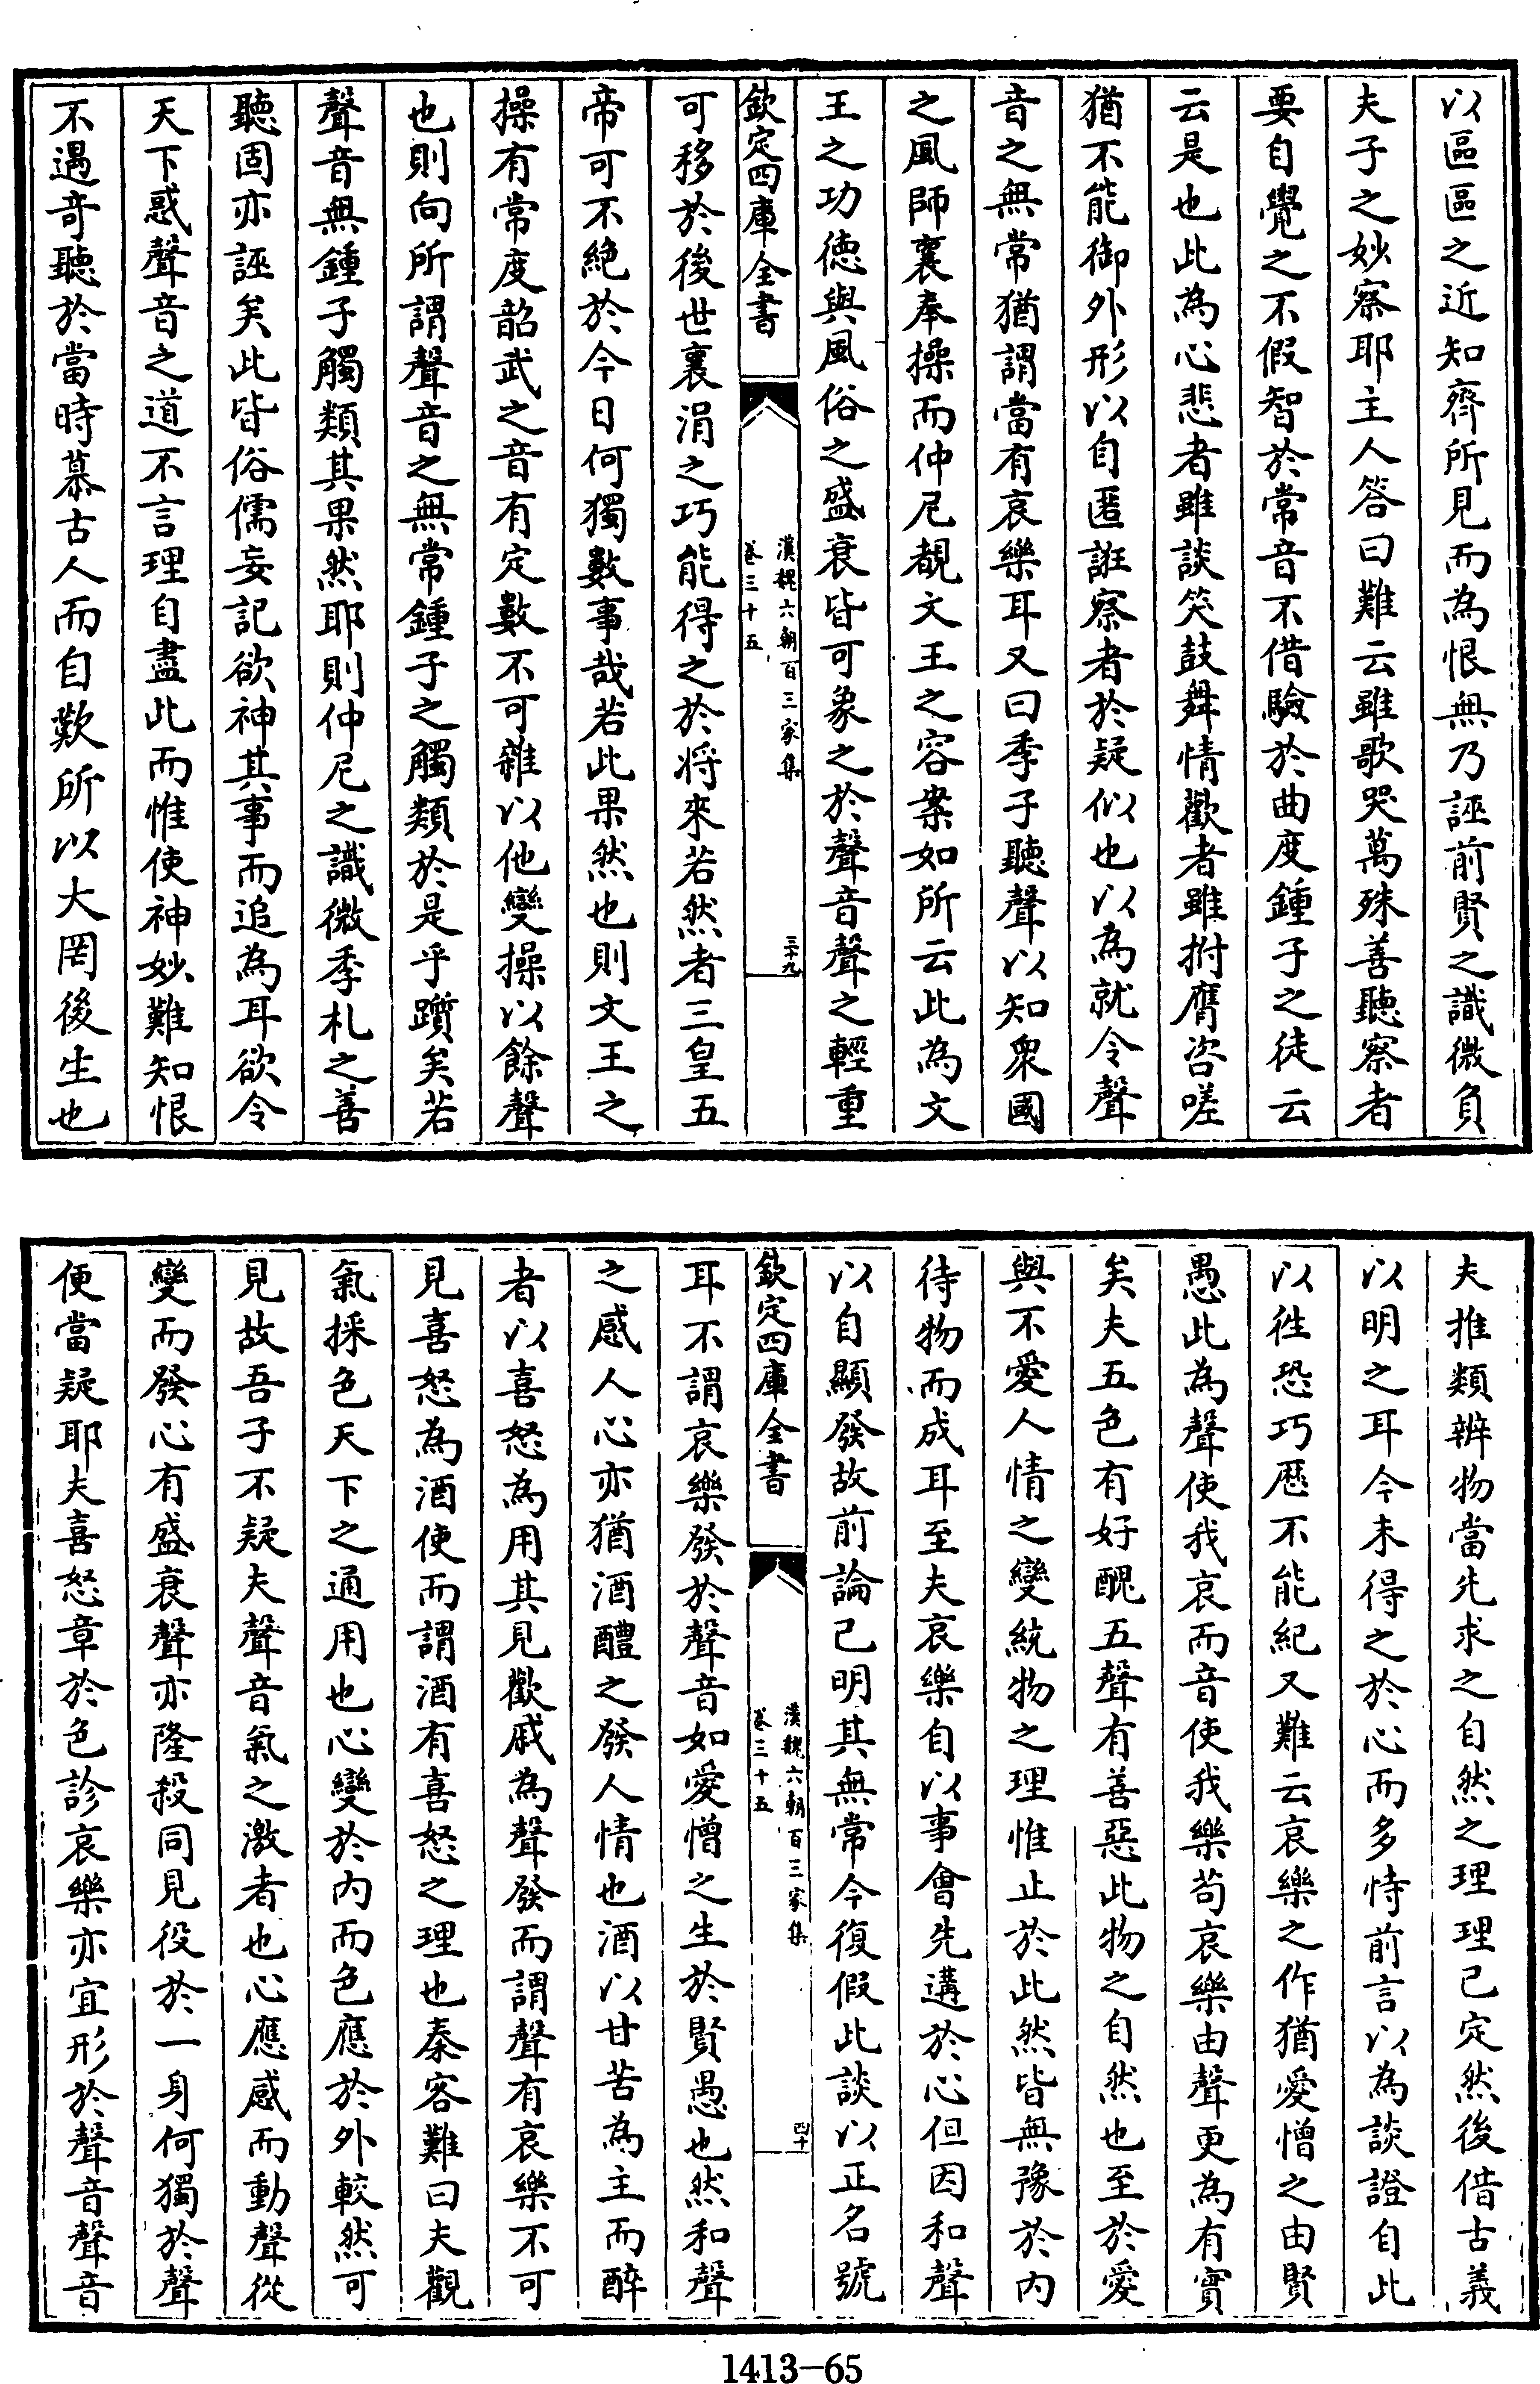 以區區之近知齊所見而為恨無乃誣前賢之識微負
夫子之妙察耶主人答曰難云雖歌哭萬殊善聽察者
要自覺之不假智於常音不借驗於曲度鍾子之徒云
云是也此為心悲者雖談笑鼓舞情歡者雖拊膺咨嗟
猶不能御外形以自匿誑察者於疑似也以為就令聲
音之無常猶謂當有哀樂耳又曰季子聽聲以知衆國
之風師襄奉操而仲尼覩文王之容案如所云此為文
王之功德與風俗之盛衰皆可象之於聲音聲之輕重
欽定四庫全書
漢魏六朝百三家集
卷三十五
三十九
可移於後世襄涓之巧能得之於将來若然者三皇五
帝可不絶於今日何獨數事哉若此果然也則文王之
操有常度韶武之音有定數不可雜以他變操以餘聲
也則向所謂聲音之無常鍾子之觸類於是乎躓矣若
聲音無鍾子觸類其果然耶則仲尼之識微季札之善
聽固亦誣矣此皆俗儒妄記欲神其事而追為耳欲令
天下惑聲音之道不言理自盡此而惟使神妙難知恨
不遇竒聽於當時慕古人而自歎所以大罔後生也
夫推類辨物當先求之自然之理理已定然後借古義
以明之耳今未得之於心而多恃前言以為談證自此
以徃恐巧厯不能紀又難云哀樂之作猶愛憎之由賢
愚此為聲使我哀而音使我樂苟哀樂由聲更為有實
矣夫五色有好醜五聲有善惡此物之自然也至於愛
與不愛人情之變統物之理惟止於此然皆無豫於内
待物而成耳至夫哀樂自以事會先遘於心但因和聲
以自顯發故前論已明其無常今復假此談以正名號
欽定四庫全書
漢魏六朝百三家集
卷三十五
四十
耳不謂哀樂發於聲音如愛憎之生於賢愚也然和聲
之感人心亦猶酒醴之發人情也酒以甘苦為主而醉
者以喜怒為用其見歡戚為聲發而謂聲有哀樂不可
見喜怒為酒使而謂酒有喜怒之理也秦客難曰夫觀
氣採色天下之通用也心變於内而色應於外較然可
見故吾子不疑夫聲音氣之激者也心應感而動聲從
變而發心有盛衰聲亦隆殺同見役於一身何獨於聲
便當疑耶夫喜怒章於色診哀樂亦宜形於聲音聲音
1413-65